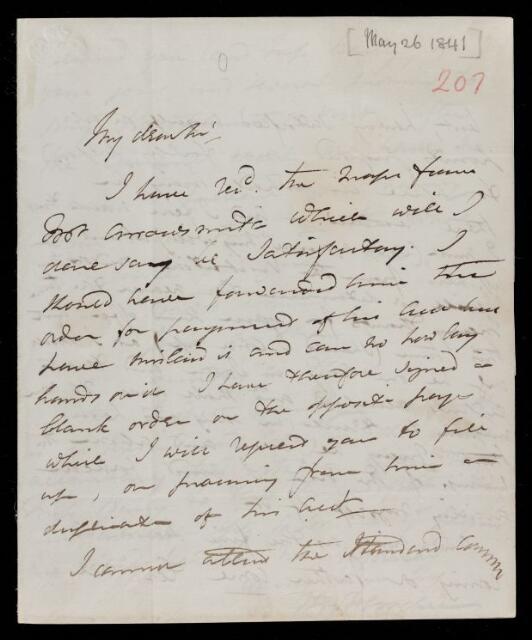 [May 26 1841]
207
My dear Sir,
I have recd. the maps from
Arrowsmith which will I
dare say be satisfactory. I
should have forwarded him the
order for payment of his acct but
have mislaid it and can no how lay
hands on it I have therefore signed a
blank order on the opposite page
which I will request you to fill
up, on procuring from him a
duplicate of his acct
I cannot attend the Standard Comm